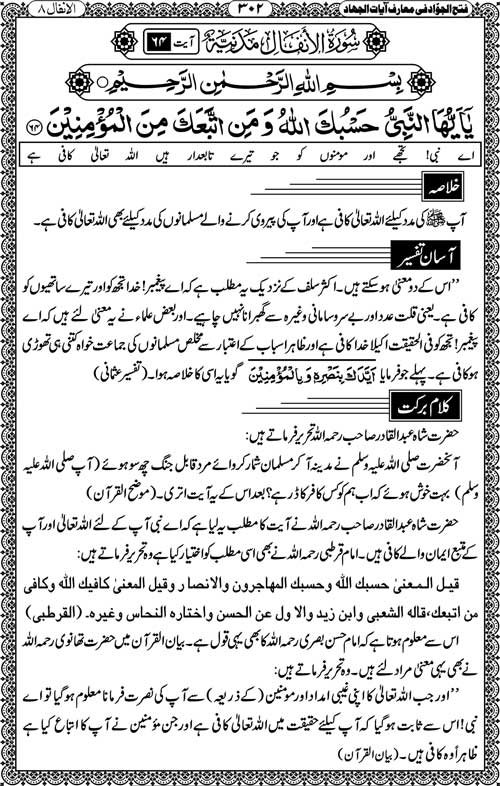 فتح الجوّاد فی معارف آیات الجهاد ۳۰۲ الانفال ۸
سُوْرَةُ الْاَنْفَالِ مَدَنِيَّةٌ آیت ۶۴
بِسْمِ اللهِ الرَّحْمٰنِ الرَّحِيْمِ
يٰۤاَيُّهَا النَّبِيُّ حَسْبُكَ اللهُ وَ مَنِ اتَّبَعَكَ مِنَ الْمُؤْمِنِيْنَ ﴿۶۴﴾
اے نبی! تجھے اور مومنوں کو جو تیرے تابعدار ہیں اللہ تعالیٰ کافی ہے
خلاصہ
آپ ﷺ کی مدد کیلئے اللہ تعالیٰ کافی ہے اور آپ کی پیروی کرنے والے مسلمانوں کی مدد کیلئے بھی اللہ تعالیٰ کافی ہے۔
آسان تفسیر
’’اس کے دو معنیٰ ہو سکتے ہیں۔ اکثر سلف کے نزدیک یہ مطلب ہے کہ اے پیغمبر! خدا تجھ کو اور تیرے ساتھیوں کو
کافی ہے۔ یعنی قلت عدد اور بے سروسامانی وغیرہ سے گھبرانا نہیں چاہیے۔ اور بعض علماء نے یہ معنیٰ لئے ہیں کہ اے
پیغمبر! تجھ کو فی الحقیقت اکیلا خدا کافی ہے اور ظاہر اسباب کے اعتبار سے مخلص مسلمانوں کی جماعت خواہ کتنی ہی تھوڑی
ہو کافی ہے۔ پہلے جو فرمایا اَيَّدَكَ بِنَصْرِهٖ وَبِالْمُؤْمِنِيْنَ گویا یہ اسی کا خلاصہ ہوا۔ (تفسیر عثمانی)
کلام برکت
حضرت شاہ عبدالقادر صاحب رحمہ اللہ تحریر فرماتے ہیں:
آنحضرت صلی اللہ علیہ وسلم نے مدینہ آ کر مسلمان شمار کروائے مرد قابل جنگ چھ سو ہوئے (آپ صلی اللہ علیہ
وسلم) بہت خوش ہوئے کہ اب ہم کو کس کافر کا ڈر ہے؟ بعد اس کے یہ آیت اتری۔ (موضح القرآن)
حضرت شاہ عبدالقادر صاحب رحمہ اللہ نے آیت کا مطلب یہ لیا ہے کہ اے نبی آپ کے لئے اللہ تعالیٰ اور آپ
کے متبع ایمان والے کافی ہیں۔ امام قرطبی رحمہ اللہ نے بھی اسی مطلب کو اختیار کیا ہے وہ تحریر فرماتے ہیں:
قيل المعنىٰ حسبك الله وحسبك المهاجرون والانصار وقيل المعنىٰ كافيك الله وكافى
من اتبعك، قاله الشعبى وابن زيد والاول عن الحسن واختاره النحاس وغيره۔ (القرطبى)
اس سے معلوم ہوتا ہے کہ امام حسن بصری رحمہ اللہ کا بھی یہی قول ہے۔ بیان القرآن میں حضرت تھانوی رحمہ اللہ
نے بھی یہی معنیٰ مراد لئے ہیں۔ وہ تحریر فرماتے ہیں:
’’اور جب اللہ تعالیٰ کا اپنی غیبی امداد اور مومنین (کے ذریعہ) سے آپ کی نصرت فرمانا معلوم ہو گیا تو اے
نبی! اس سے ثابت ہو گیا کہ آپ کیلئے حقیقت میں اللہ تعالیٰ کافی ہے اور جن مؤمنین نے آپ کا اتباع کیا ہے
ظاہراً وہ کافی ہیں۔ (بیان القرآن)